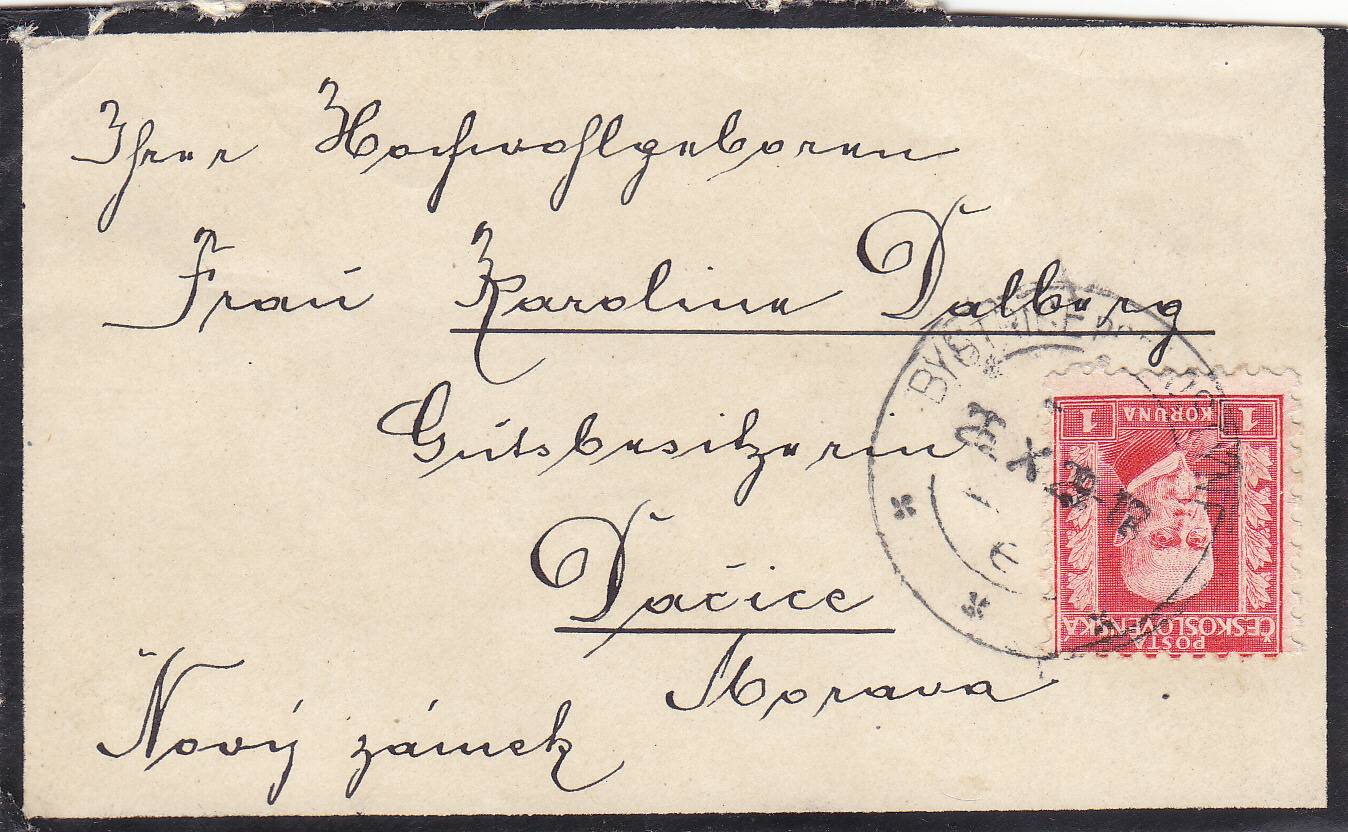 Ihrer Hochwohlgeboren
Fraú Karoline Dalberg
Gútsbesitzerin
Dačice
Morava
Nový zámek
1 KORUNA 1
POŠTA
ČESKOSLOVENSKÁ
X 29-17